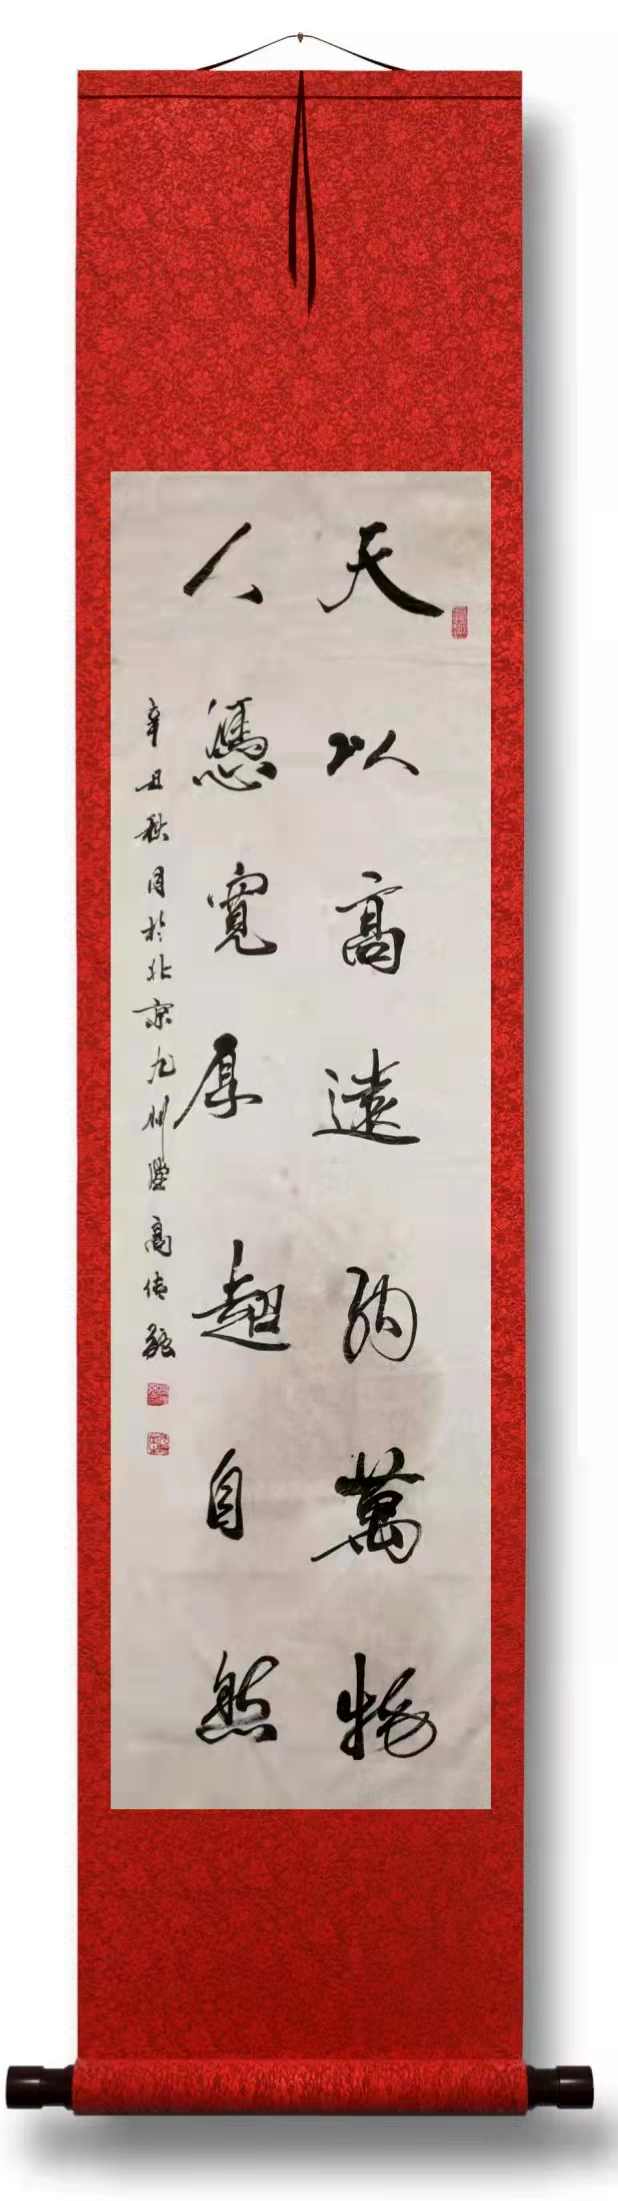 天以高遠納萬物
人憑寬厚超自然
辛丑秋月於北京九州堂高传融